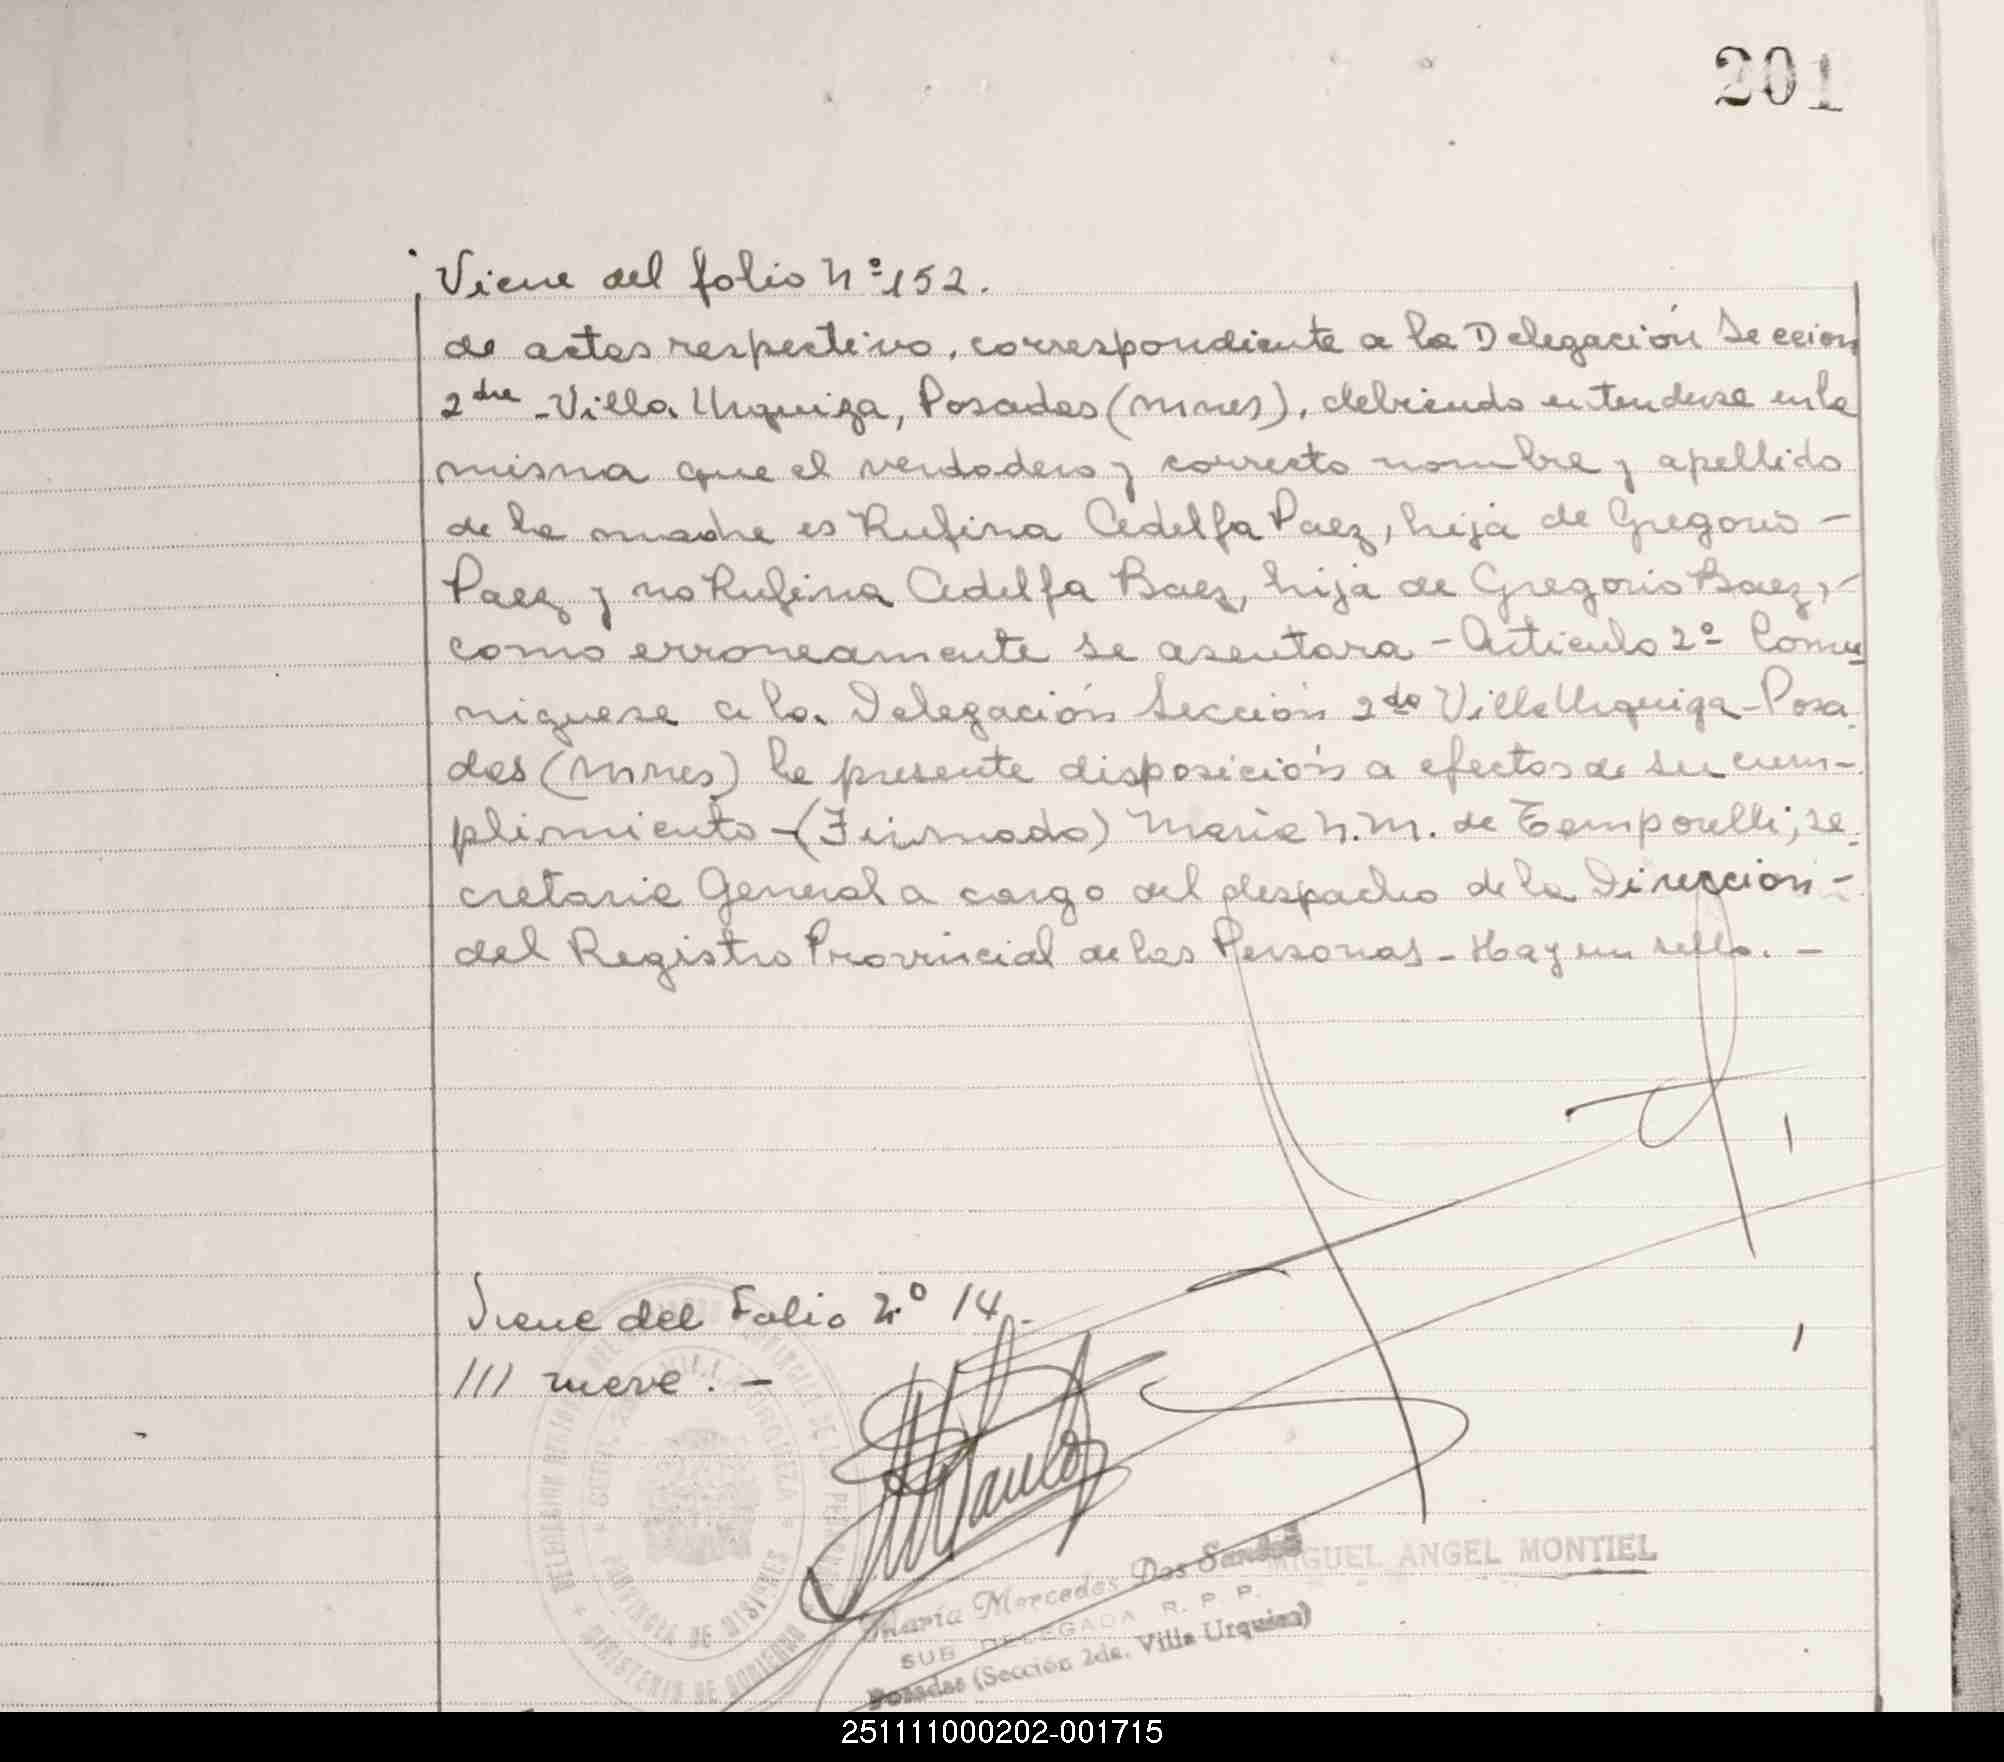 201
Viene del folio Nº 152.
de actas respectivo, correspondiente a la Delegación Seccion
2da - Villa Urquiza, Posadas (Mnes), debiendo entenderse en la
misma que el verdadero y correcto nombre y apellido
de la madre es Rufina Adelfa Paez, hija de Gregorio -
Paez y no Rufina Adelfa Baez, hija de Gregorio Baez, -
como erroneamente se asentara - Artículo 2º Comu
niquese a la Delegación Sección 2da Villa Urquiza - Posa
das (Mnes) la presente disposición a efectos de su cum-
plimiento - (Firmado) María N. M. de Temporelli, se
cretaria General a cargo del despacho de la Dirección -
del Registro Provincial de las Personas - Hay un sello. -
Viene del Folio Nº 14 -
/// nueve. -
MIGUEL ANGEL MONTIEL
María Mercedes Dos Santos
SUB DELEGADA R. P. P.
Posadas (Sección 2da. Villa Urquiza)
PROVINCIA DE MISIONES
MINISTERIO DE GOBIERNO
251111000202-001715